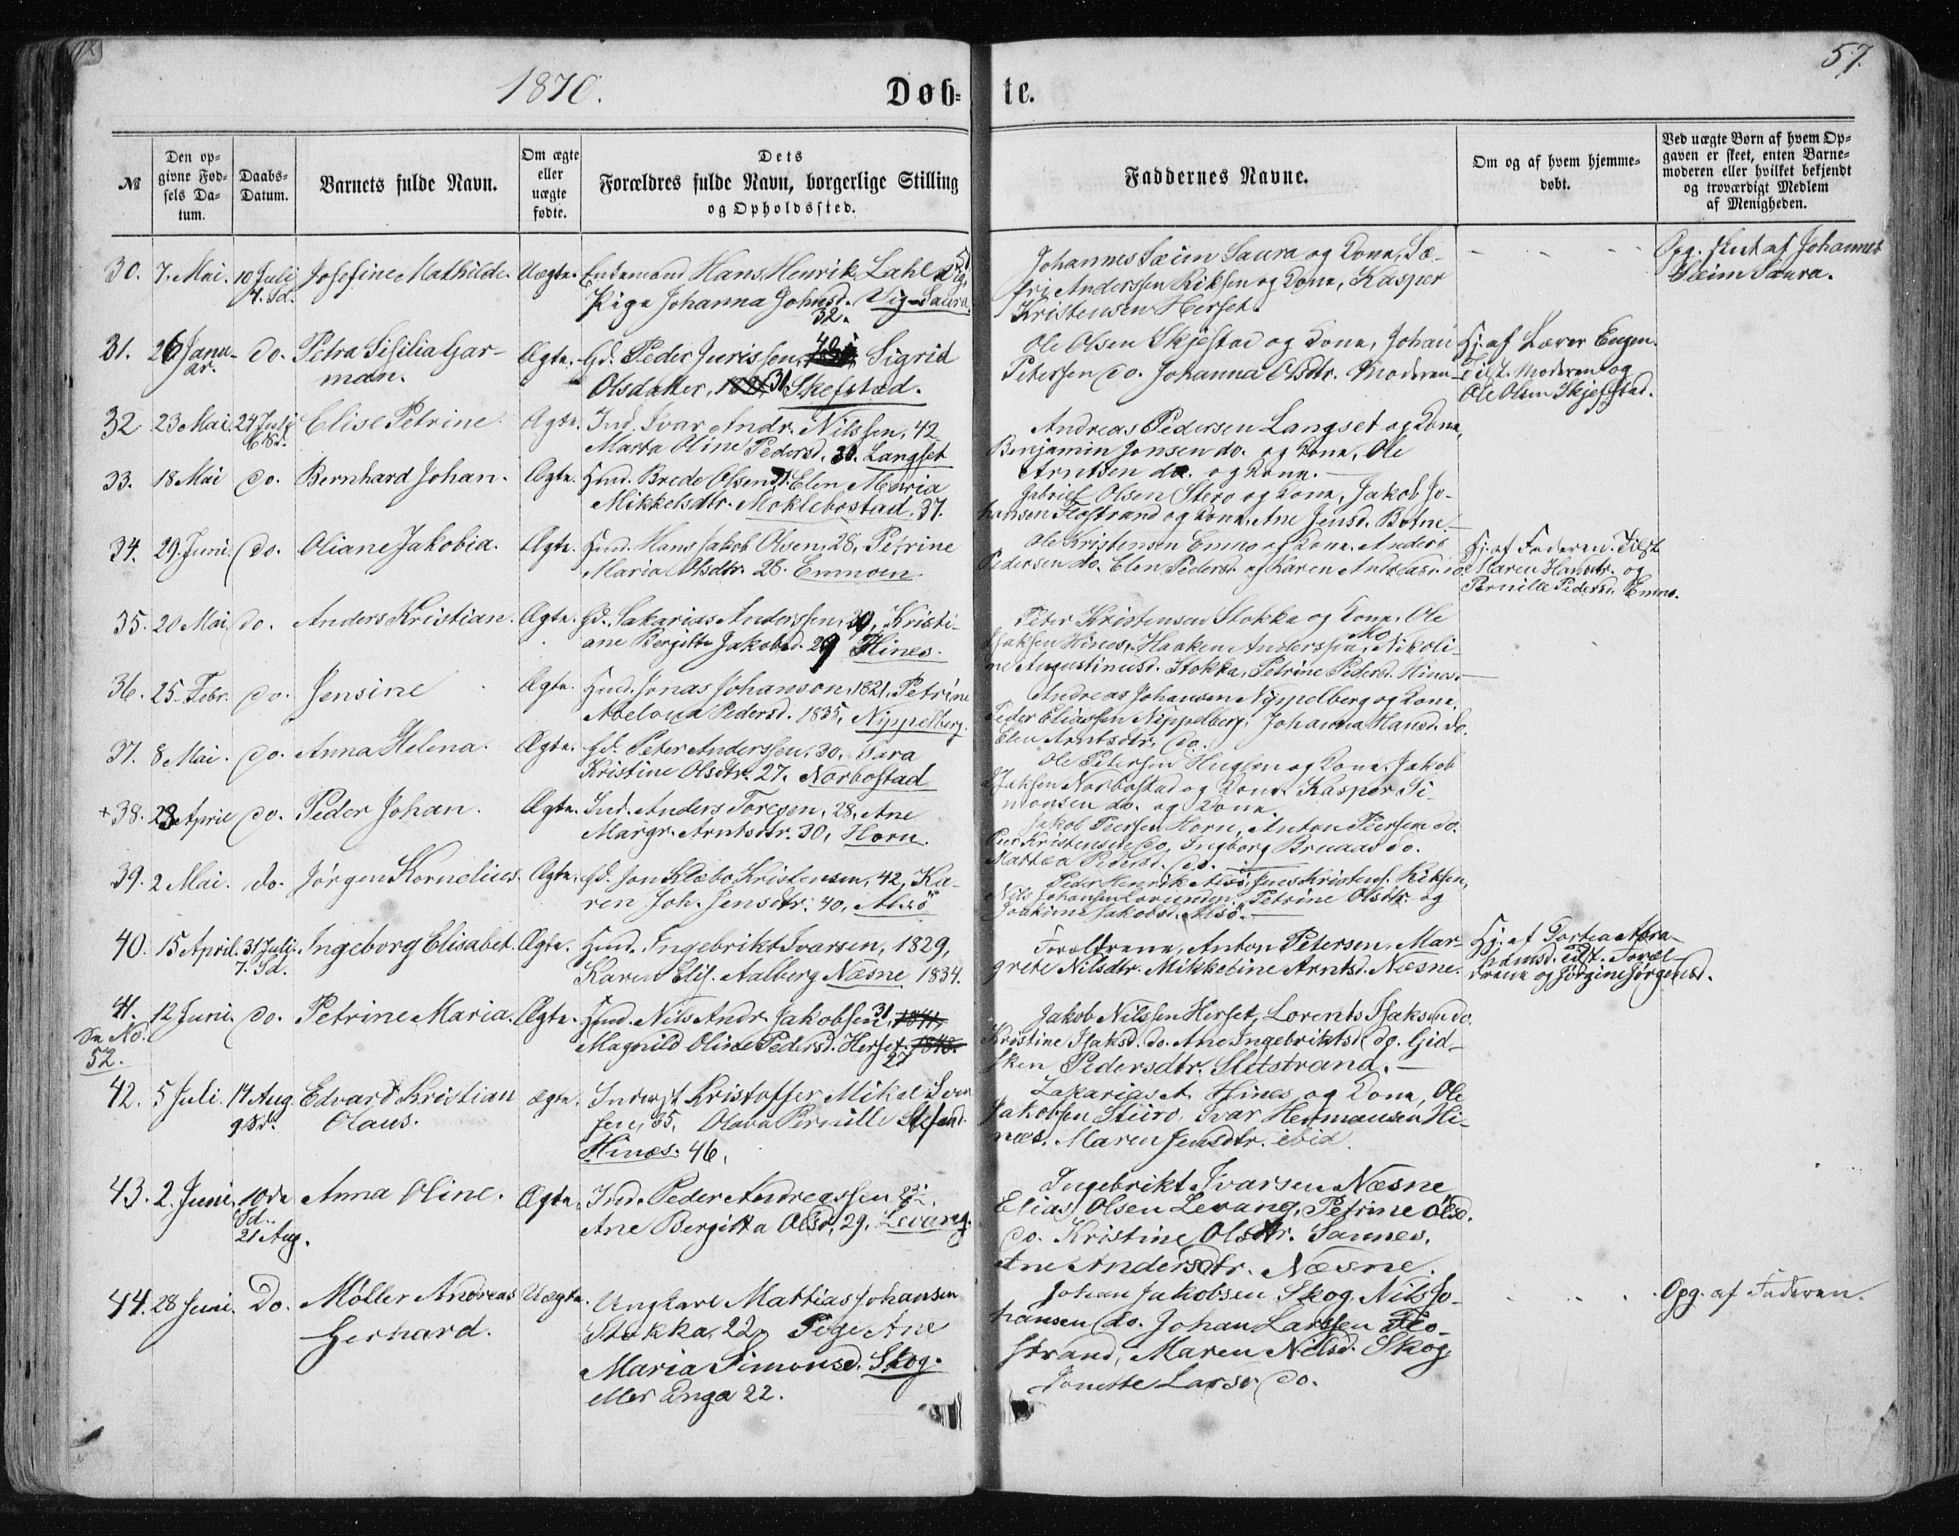 1870.
Døb=
te.
57.
№
Den op=
givne Fød=
sels Da=
tum.
Daabs=
Datum.
Barnets fulde Navn.
Om ægte
eller
uægte
fødte.
Dets
Forældres fulde Navn, borgerlige Stilling
og Opholdssted.
Faddernes Navne.
Om og af hvem hjemme=
døbt.
Ved uægte Børn af hvem Op=
gaven er skeet, enten Barne=
moderen eller hvilket bekjendt
og troværdigt Medlem
af Menigheden.
30. 7. Mai. 10 Juli Josefine Mathilde. Uægte. Enkemand Hans Henrik Lahl
4. Sd. Pige Johanna Johnsd. Vig-Saura.
32.
Johannes Sæim Saura og Kone, Sæ-
fri Anderssen Riksen og Kone, Kasper
Kristensen Herset.
Opg. skeet af Johannes
Sæim Saura.
31. 26 Janu- do. Petra Sisilia Gar- Ægte. Gd. Peder Jurissen, 40, Sigrid
ar. man. Olsdatter, 31 Skefstad.
Ole Olsen Skjefstad og Kone, Johan
Petersen do. Johanna Olsdtr. Moderen
Hj. af Lærer Eugen.
Tilst. Moderen og
Ole Olsen Skjefstad.
32 23 Mai. 24 Juli Elise Petrine. Ægte. Ind. Ivar Andr. Nilssen, 42
6 Sd. Marta Oline Pedersd. 30. Langset
Andreas Pedersen Langset og Kone,
Benjamin Jonsen do. og Kone, Ole
Arntsen do. og Kone.
33. 18 Mai do. Bernhard Johan. Ægte. Hmd. Brede Olsen, Elen Maria
Mikkelsdtr. Moklebostad. 37.
Gabriel Olsen Stero og Kone, Jakob Jo-
hansen Flostrand og Kone, Ane Jensd. Botne.
34. 29. Juni. do. Oliane Jakobia. Ægte. Hmd. Hans Jakob Olsen, 28, Petrine
Maria Olsdtr. 28. Emmoen
Ole Kristensen Emmo og Kone, Anders
Pedersen do. Elen Pedersd. og Karen Andreasd. do
Hj. af Faderen. Tilst.
Karen Hansdtr. og
Pernille Pedersd. Emmo.
35. 20 Mai do. Anders Kristian. Ægte. Gd. Sakarias Anderssen, 30, Kristi-
ane Bergitte Jakobsd. 29 Hines.
Peter Kristensen Stokka og Kone, Ole
Isaksen Hines, Haaken Anderssen Mo, Nikoli-
ne Augustinusd. Stokka, Petrine Pedersd. Hines.
36. 25. Febr. do. Jensine Ægte. Hmd. Jonas Johanson, 1821, Petrine
Abelona Pedersd. 1835, Nippelberg.
Andreas Johansen Nippelberg og Kone,
Peder Eliassen Nippelberg, Johanna Hansd. do.
Elen Arntsdtr. do.
37. 8 Mai. do. Anna Helena. Ægte. Gd. Peter Anderssen, 30, Sara
Kristine Olsdtr. 27. Norbostad
Ole Petersen Huglen og Kone, Jakob
Isaksen Norbostad og Kone, Kasper Si-
monsen do. og Kone.
+38. 23 April do. Peder Johan. Ægte. Ind. Anders Toresen, 28, Ane
Margr. Arntsdtr. 30, Horn.
Jakob Peersen Horn, Anton Peersen do.
Peer Kristensen do, Ingborg Bruaas do.
Martea Pedersd. do.
39. 2 Mai. do. Jørgen Kornelius. Ægte. Gd. Jon Klæbo Kristensen, 42, Ka-
ren Joh. Jensdtr. 40, Alsø
Peder Henrik Alsø, Jens Kristens. Riksen,
Nils Johansen Lovunden, Petrine Olsdtr. og
Joakime Jakobsd. Alsø.
40. 15 April. 31 Juli. Ingeborg Elisabet. Ægte. Hmd. Ingebrikt Ivarsen, 1829,
7. Sd. Karen Elis. Aalberg Næsne 1834.
Forældrene, Anton Petersen, Mar-
grete Nilsdtr. Mikkeline Arntsd. Næsne.
Hj. af Dortea Abra-
hamsd. tilst. Foræl-
drene og Jørgine Jørgensd.
41. 12 Juni. do. Petrine Maria. Ægte. Hmd. Nils Andr. Jakobsen, 31 1841,
Se No. Magnild Oline Pedersd. Herset. 27 1843.
52.
Jakob Nilssen Herset, Lorents Isaksen do.
Kristine Isaksd. do. Ane Ingebriktsd. do. Gid-
sken Pedersdtr. Sletstrand.
42. 5 Juli. 14 Aug. Edvard Kristian Ægte. Inderst Kristoffer Mikal Iver
9 Sd. Olaus. sen, 35, Olava Pernille Stefand.
Hines. 46.
Zakarias A. Hines og Kone, Ole
Jakobsen Stiiro. Ivar Hermansen Hi-
nes. Maren Jensdtr. ibid.
43. 2 Juni. 10de Anna Oline. Ægte. Ind. Peder Andreassen
Sd. Ane Bergitta Olsd, 29, Levang.
21 Aug.
Ingebrikt Ivarsen Næsne
Elias Olsen Levang, Petrine Olsd.
do. Kristine Olsdtr. Sannes,
Ane Andersdtr. Næsne.
44. 28 Juni. Do. Møller Andreas Uægte. Ungkarl Mathias Johansen
Gerhard. Stokka, 22, Pige Ane
Maria Simonsd. Skog.
eller Enga 22.
Johan Jakobsen Skog, Nils Jo-
hansen do. Johan Larssen Flo-
strand, Maren Nilsd. Skog
Jonette Larsd. do.
Opg. af Faderen.